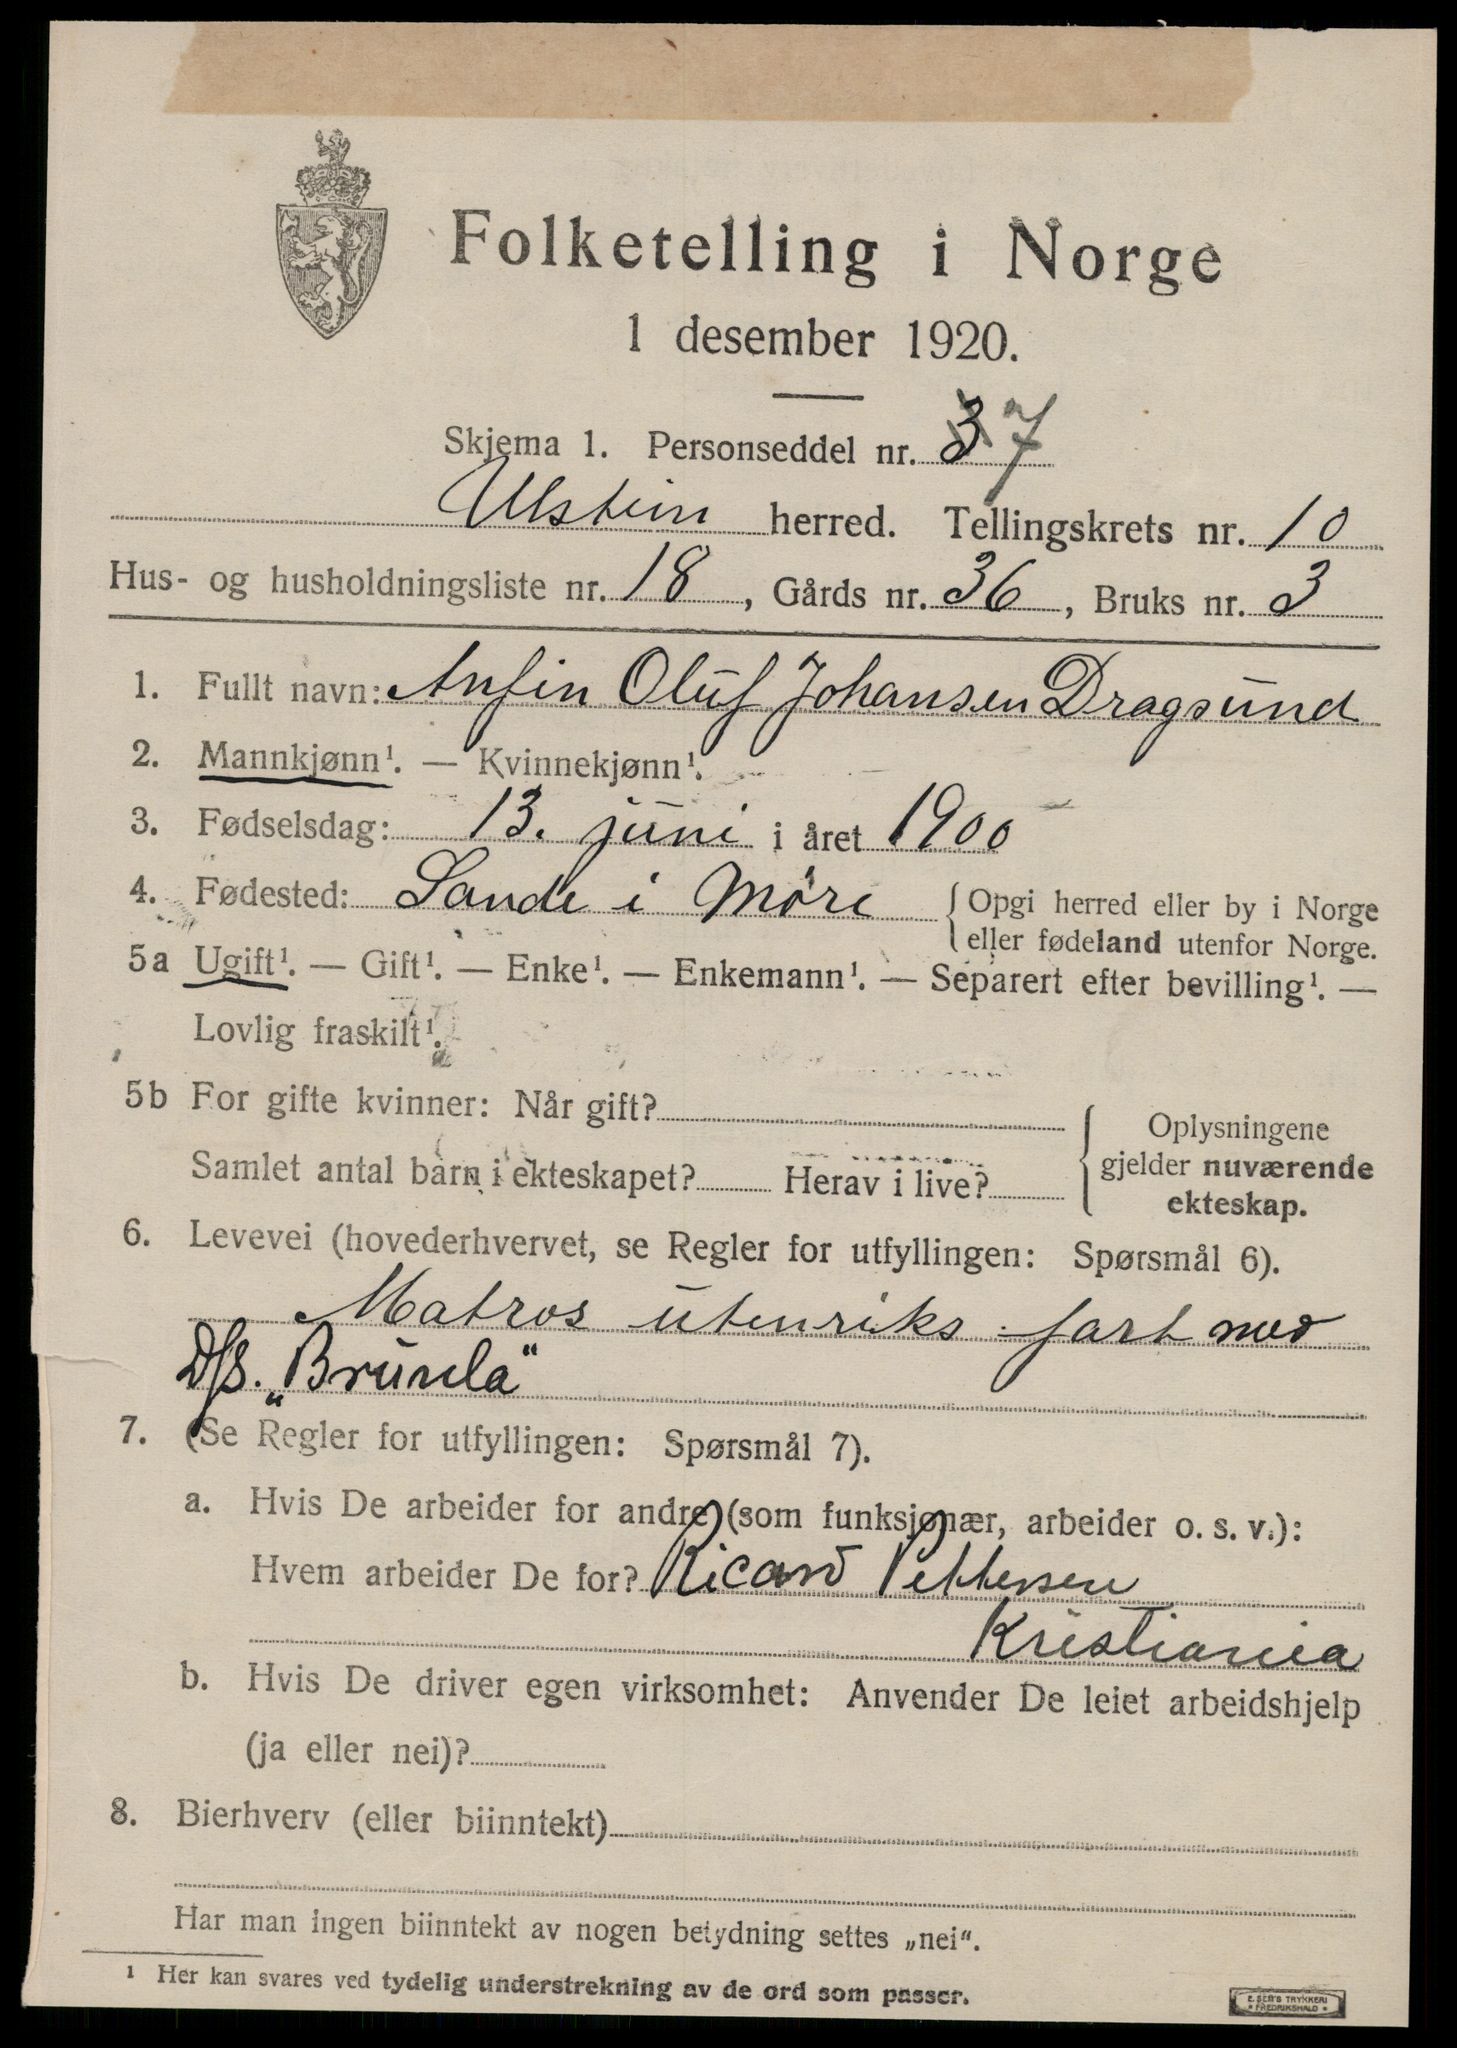 Folketelling i Norge
1 desember 1920.
Skjema 1. Personseddel nr. 3 7
Ulstein herred. Tellingskrets nr. 10
Hus- og husholdningsliste nr. 18, Gårds nr. 36, Bruks nr. 3
1. Fullt navn: Anfin Oluf Johansen Dragsund
2. Mannkjønn¹. — Kvinnekjønn¹.
3. Fødselsdag: 13. juni i året 1900
4. Fødested: Sande i Møre { Opgi herred eller by i Norge
eller fødeland utenfor Norge.
5a Ugift¹. — Gift¹. — Enke¹. — Enkemann¹. — Separert efter bevilling¹. —
Lovlig fraskilt¹.
5b For gifte kvinner: Når gift?
Samlet antal barn i ekteskapet? Herav i live?
Oplysningene
gjelder nuværende
ekteskap.
6. Levevei (hovederhvervet, se Regler for utfyllingen: Spørsmål 6).
Matros utenriks fart med
D/S. „Brunla"
7. (Se Regler for utfyllingen: Spørsmål 7).
a. Hvis De arbeider for andre (som funksjonær, arbeider o. s. v.):
Hvem arbeider De for? Ricard Pettersen
Kristiania
b. Hvis De driver egen virksomhet: Anvender De leiet arbeidshjelp
(ja eller nei)?
8. Bierhverv (eller biinntekt)
Har man ingen biinntekt av nogen betydning settes „nei".
¹ Her kan svares ved tydelig understrekning av de ord som passer.
E. SEM'S TRYKKERI
FREDRIKSHALD